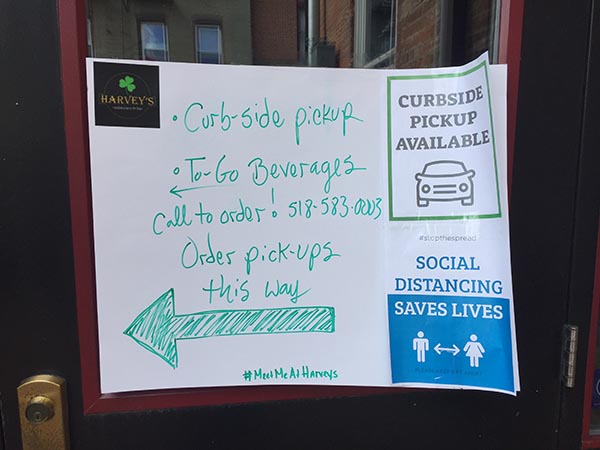 HARVEY'S
• Curb-side pickup
• To-Go Beverages
Call to order: 518-583-0003
Order pick-ups
this way
#MeetMeAtHarveys
CURBSIDE
PICKUP
AVAILABLE
#stopthespread
SOCIAL
DISTANCING
SAVES LIVES